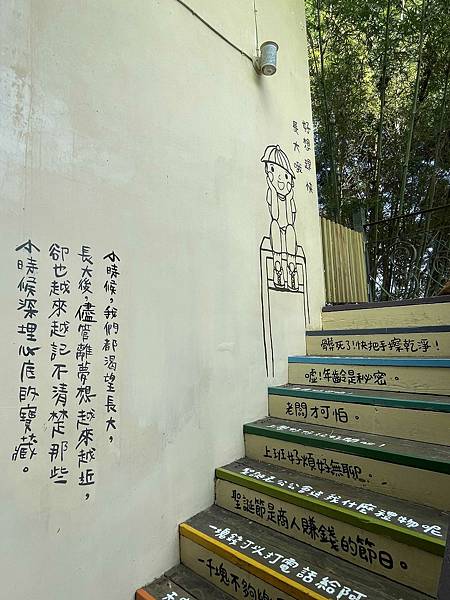 好想趕快
長大喔
小時候，我們都渴望長大，
長大後，儘管離夢想越來越近，
卻也越來越記不清楚那些
小時候深埋心底的寶藏。
髒死了!快把手擦乾淨!
噓!年齡是秘密。
老闆才可怕。
上班好煩好無聊。
聖誕老公公會送我什麼禮物呢
聖誕節是商人賺錢的節日。
一塊錢可以打電話給阿
一千塊不夠